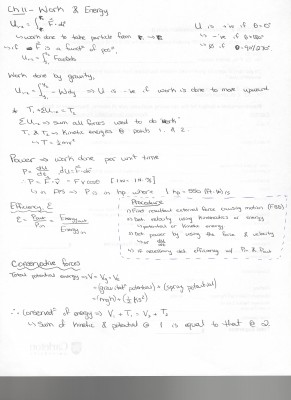 Ch 11 → Work & Energy
U₁₋₂ = ∫ F⃗·dr⃗
U is +ve if θ=0°
↳ work done to take particle from r₁ → r₂
↳ -ve if θ=180°
↳ if F⃗ is a funct° of pos°,
↳ ∅ if θ=90°/270°
U₁₋₂ = ∫ Fcosθds
Work done by gravity,
U₁₋₂ = ∫ -Wdy ⇒ U is -ve if work is done to move upward
* T₁ + ΣU₁₋₂ = T₂
ΣU₁₋₂ ⇒ sum all forces used to do work
T₁ & T₂ → Kinetic energies @ points 1 & 2
↳ T = ½mv²
Power → work done per unit time
P = dU/dt dU = F⃗·dr⃗
∴ P = F⃗·v⃗ = Fvcosθ [1W = 1J/s]
↳ in FPS ⇒ P is in hp where 1 hp = 550 (ft·lb)/s
Efficiency, ε
ε = Pout/Pin = Energy out/Energy in
Procedure
1) Find resultant external force causing motion (FBD)
2) Get velocity using kinematics or energy
↳ potential or kinetic energy
3) Get power by using the force & velocity
↳ or dU/dt
4) if necessary get efficiency w/ Pin & Pout
Conservative forces
Total potential energy → V = Vg + Ve
= (gravitat° potential) + (spring potential)
= (mgh) + (½ks²)
∴ conservat° of energy ⇒ V₁ + T₁ = V₂ + T₂
↳ sum of kinetic & potential @ 1 is equal to that @ 2